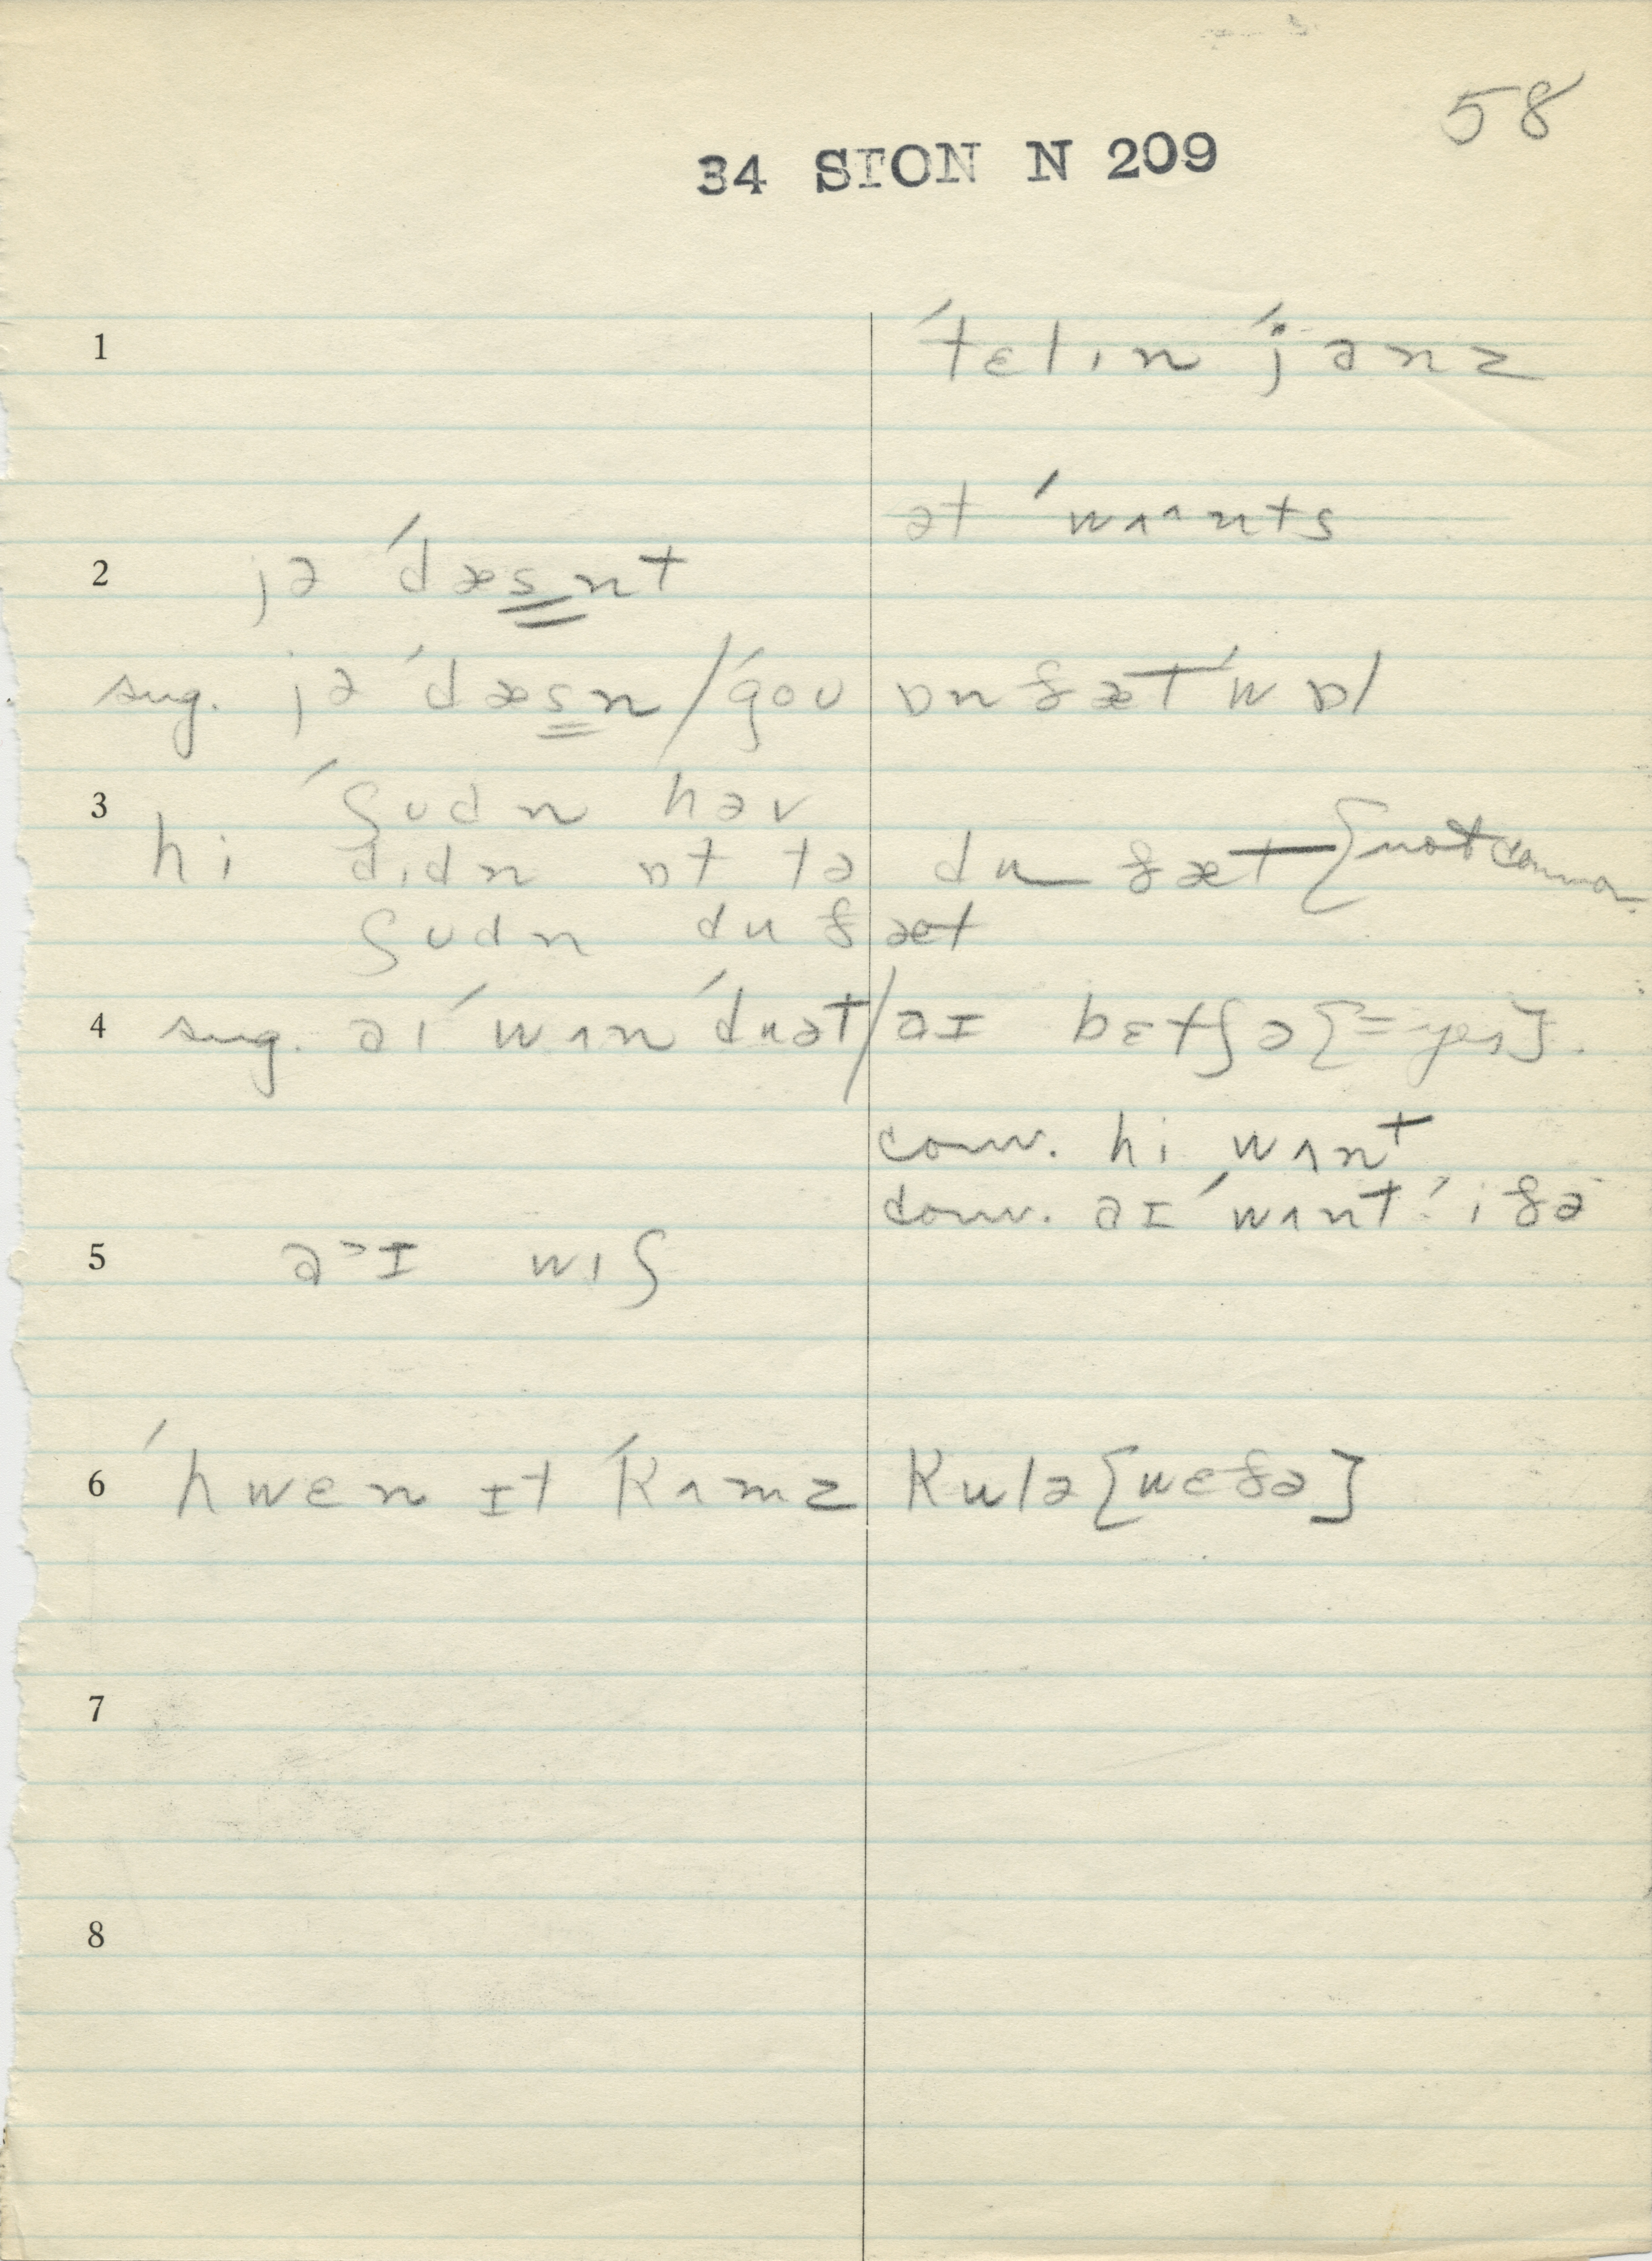 58
34 STON N 209
1 ˈtɛlɪn ˈjɑnz
ət ˈwʌʌnts
2 jə ˈdæsnt
sug. jə ˈdæsn / ˈgoʊ ɒn ðæt ˈwɒl
3 ˈʃʊdn həv
hi dɪdn ɒt tə du ðæt [not common
ʃʊdn du ðæt
4 sug. aɪ ˈwʌn ˈduət / aɪ bɛtʃə [= yes].
conv. hi wʌnt
conv. aɪ ˈwʌnt
5 a˃ɪ wɪʃ
6 ˈhwɛn ɪt ˈkʌmz kulə [wɛðə]
7
8